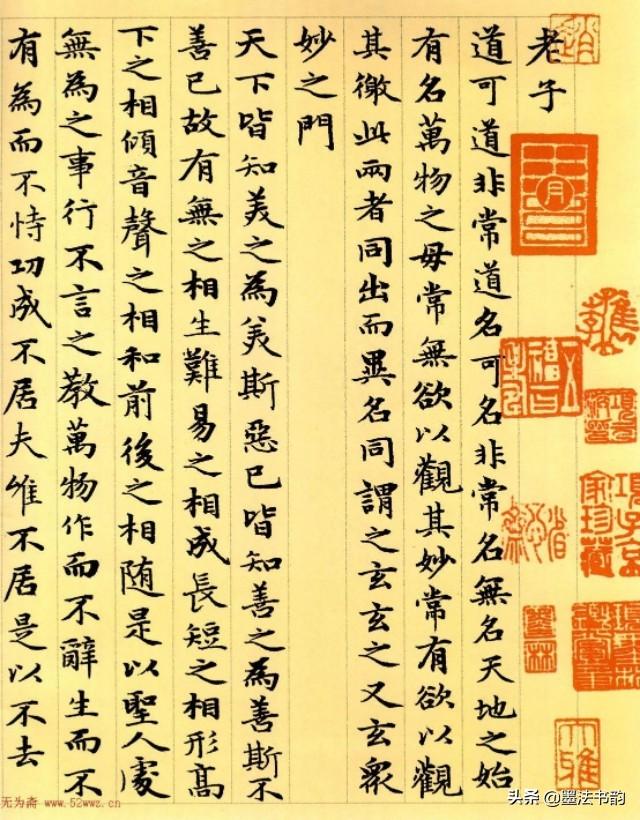 老子
道可道非常道名可名非常名無名天地之始
有名萬物之母常無欲以觀其妙常有欲以觀
其徼此兩者同出而異名同謂之玄玄之又玄眾
妙之門
天下皆知美之為美斯惡已皆知善之為善斯不
善已故有無之相生難易之相成長短之相形高
下之相傾音聲之相和前後之相随是以聖人處
無為之事行不言之教萬物作而不辭生而不
有為而不恃功成不居夫唯不居是以不去
項子京家珍藏
墨林
无为斋 www.52wwz.cn
头条 @墨法书韵